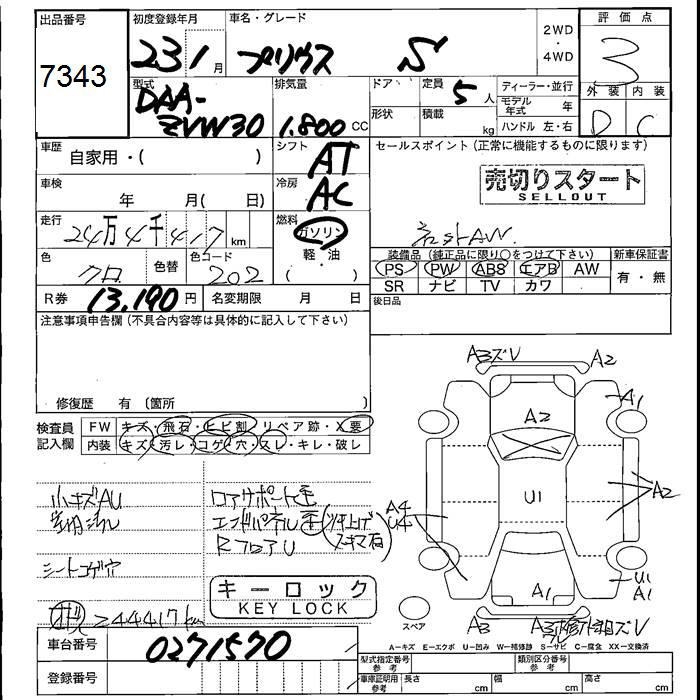 出品番号
7343
初度登録年月
23 1 月
車名・グレード
プリウス S
2WD
・
4WD
評価点
3
外装 内装
D C
型式
DAA-
ZVW30
排気量
1.800 CC
ドア
形状
定員 5 人
積載 kg
ディーラー・並行
モデル年式 年
ハンドル 左・右
車歴
自家用・( )
シフト
AT
セールスポイント (正常に機能するものに限ります)
売切りスタート
SELLOUT
車検
年 月( 日)
冷房
AC
走行
24万4千417 km
燃料
ガソリン
軽・油
社外AW.
色
クロ
色替
色コード
202
装備品 (純正品に限り○をつけて下さい)
新車保証書
PS PW ABS エアB AW
SR ナビ TV カワ
有・無
R券 13,190 円
名変期限 月 日
後日品
注意事項申告欄 (不具合内容等は具体的に記入して下さい)
修復歴 有 (箇所 )
検査員
記入欄
FW キズ・飛石・ヒビ割 リペア跡・X 要
内装 キズ・汚レ・コゲ・穴・スレ・キレ・破レ
小キズAU
室内汚レ
シートコゲ穴
244417km
ロアサポート歪
エンドパネル歪(ツキ上げ
スキマ有)
RフロアU
キーロック
KEY LOCK
車台番号
0271570
登録番号
A3ズレ
A2
A1
A2
A2
U1
A4
U4
A1
U1
A1
スペア
A3
A=キズ E=エクボ U=凹み W=補修跡 S=サビ C=腐食 XX=交換済
型式指定番号
参考
類別区分番号
参考
車庫証明用
参考
長さ cm
幅 cm
高さ cm